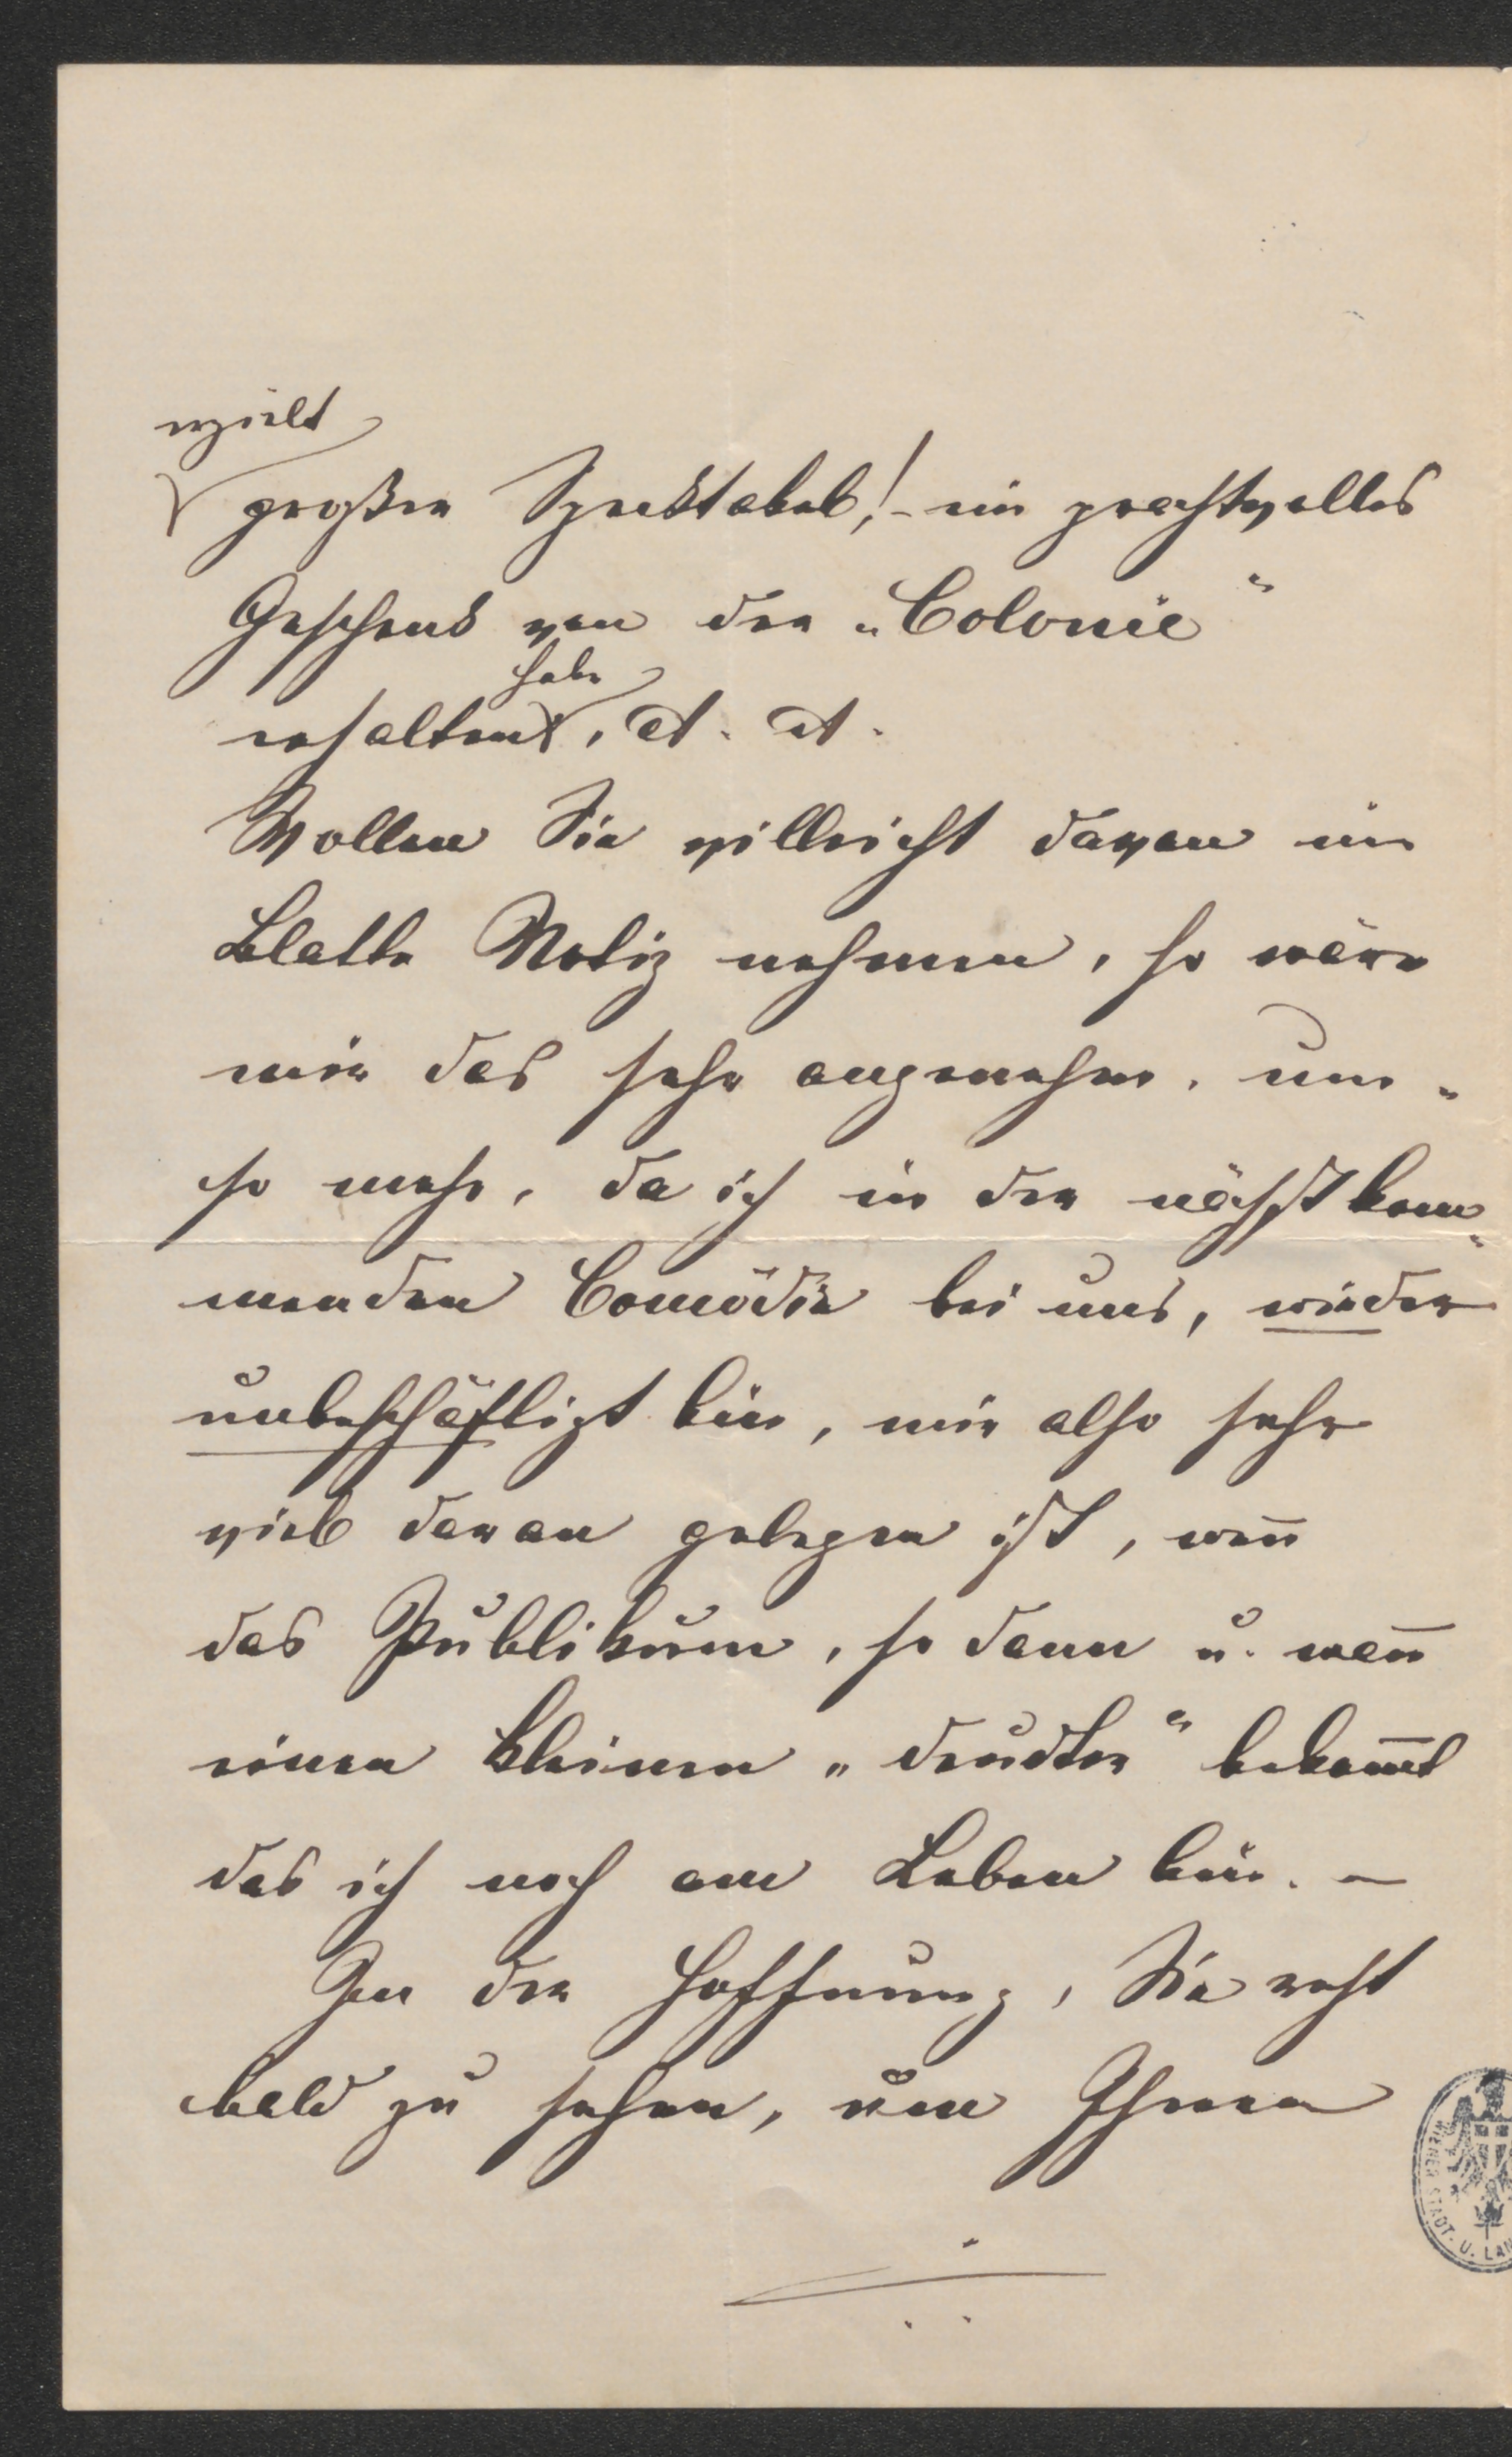 erzielt
großer Specktakel!, - ein prachtvolles
Geschenk von der „Colonie"
habe
erhalten, et. et.
Wollen Sie villeicht davon im
Blatte Notiz nehmen, so wäre
mir das sehr angenehm, um-
so mehr, da ich in der nächstkom-
menden Comödie bei uns, wieder
unbeschäftigt bin, mir also sehr
viel daran gelegen ist, weñ
das Publikum, so dann u. wañ
einen kleinen „deudter" bekom̄t
das ich noch am Leben bin. -
In der Hoffnung, Sie recht
bald zu sehen, um Ihnen
WIENER STADT- U. LAN